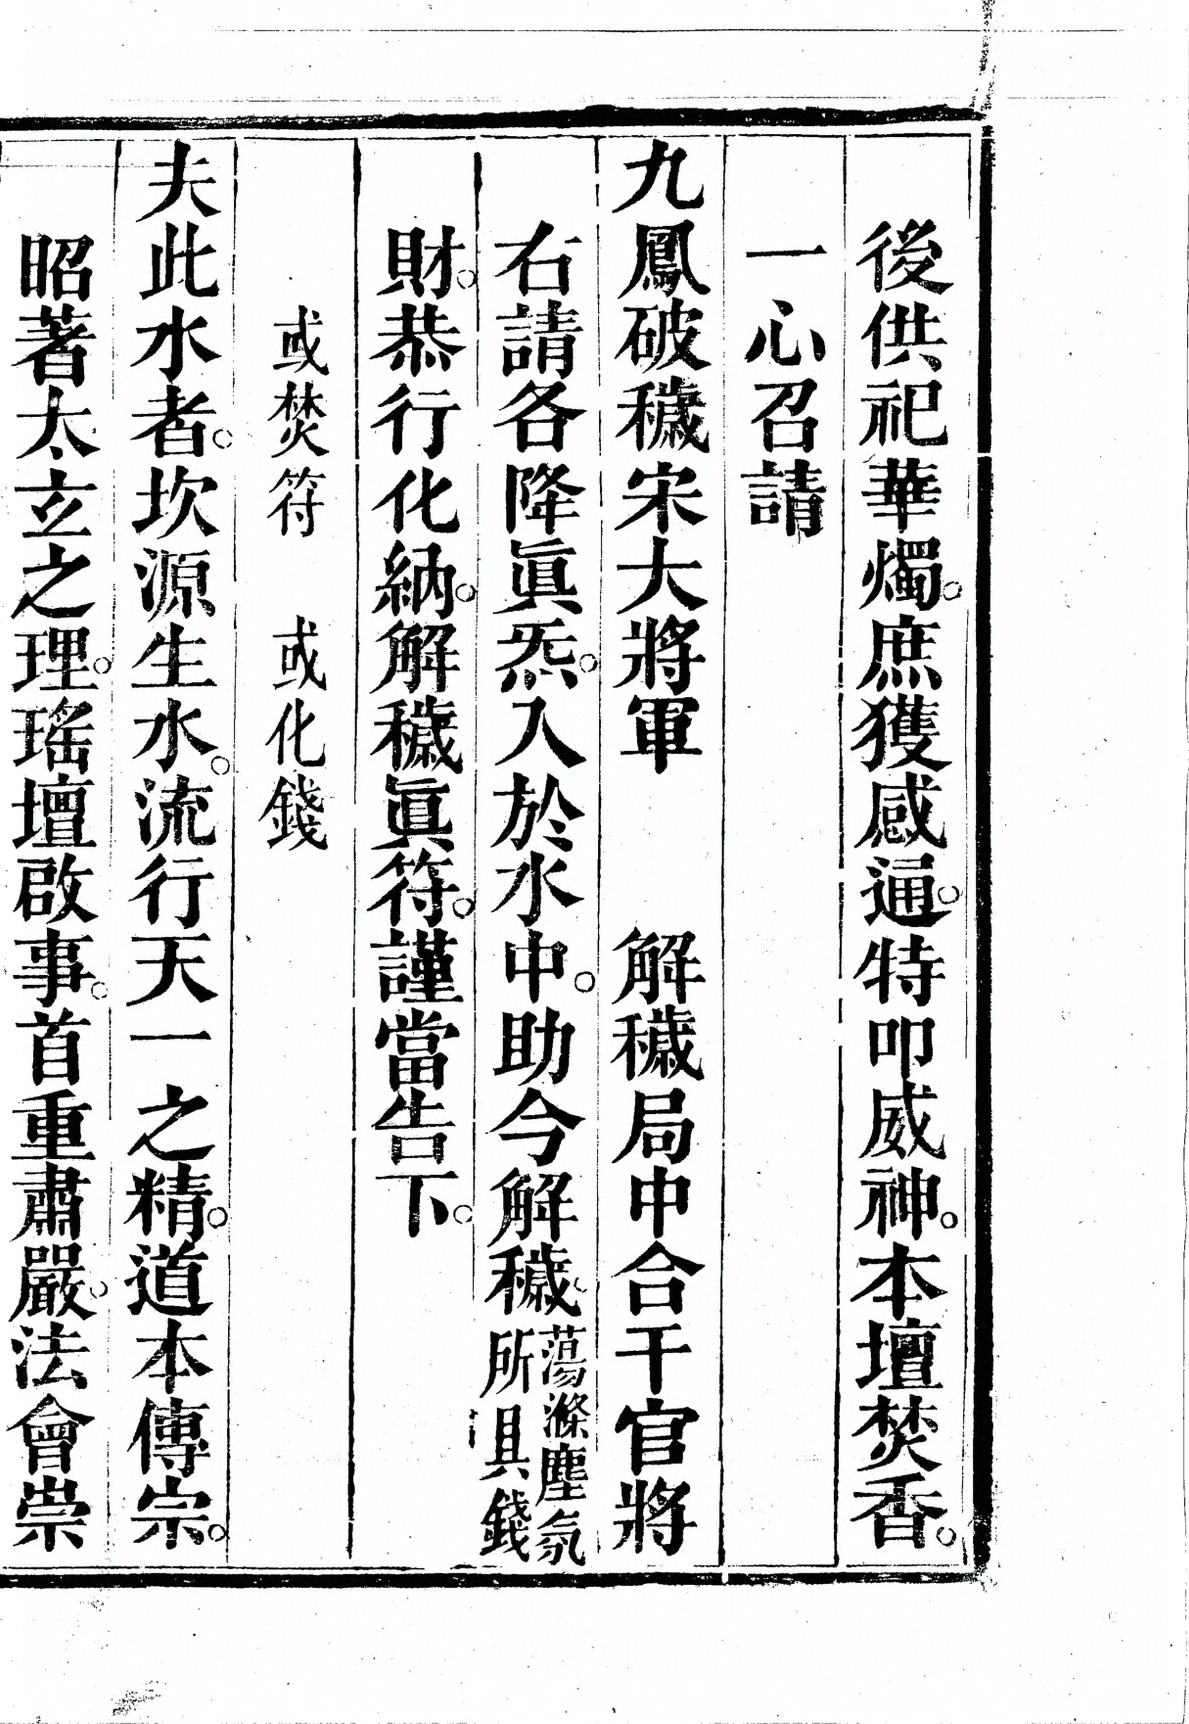 後供祀華燭。庶獲感通。特叩威神。本壇焚香。
一心召請
九鳳破穢宋大將軍　解穢局中合干官將
右請各降眞炁。入於水中。助今解穢。蕩滌塵氛所具錢
財。恭行化納。解穢眞符。謹當告下。
或焚符　或化錢
夫此水者。坎源生水。流行天一之精。道本傳宗。
昭著太立之理。瑤壇啟事。首重肅嚴。法會崇